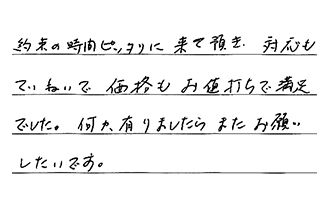 約束の時間ピッタリに 来て頂き、対応も
ていねいで 価格も お値打ちで満足
でした。何か有りましたら また お願い
したいです。